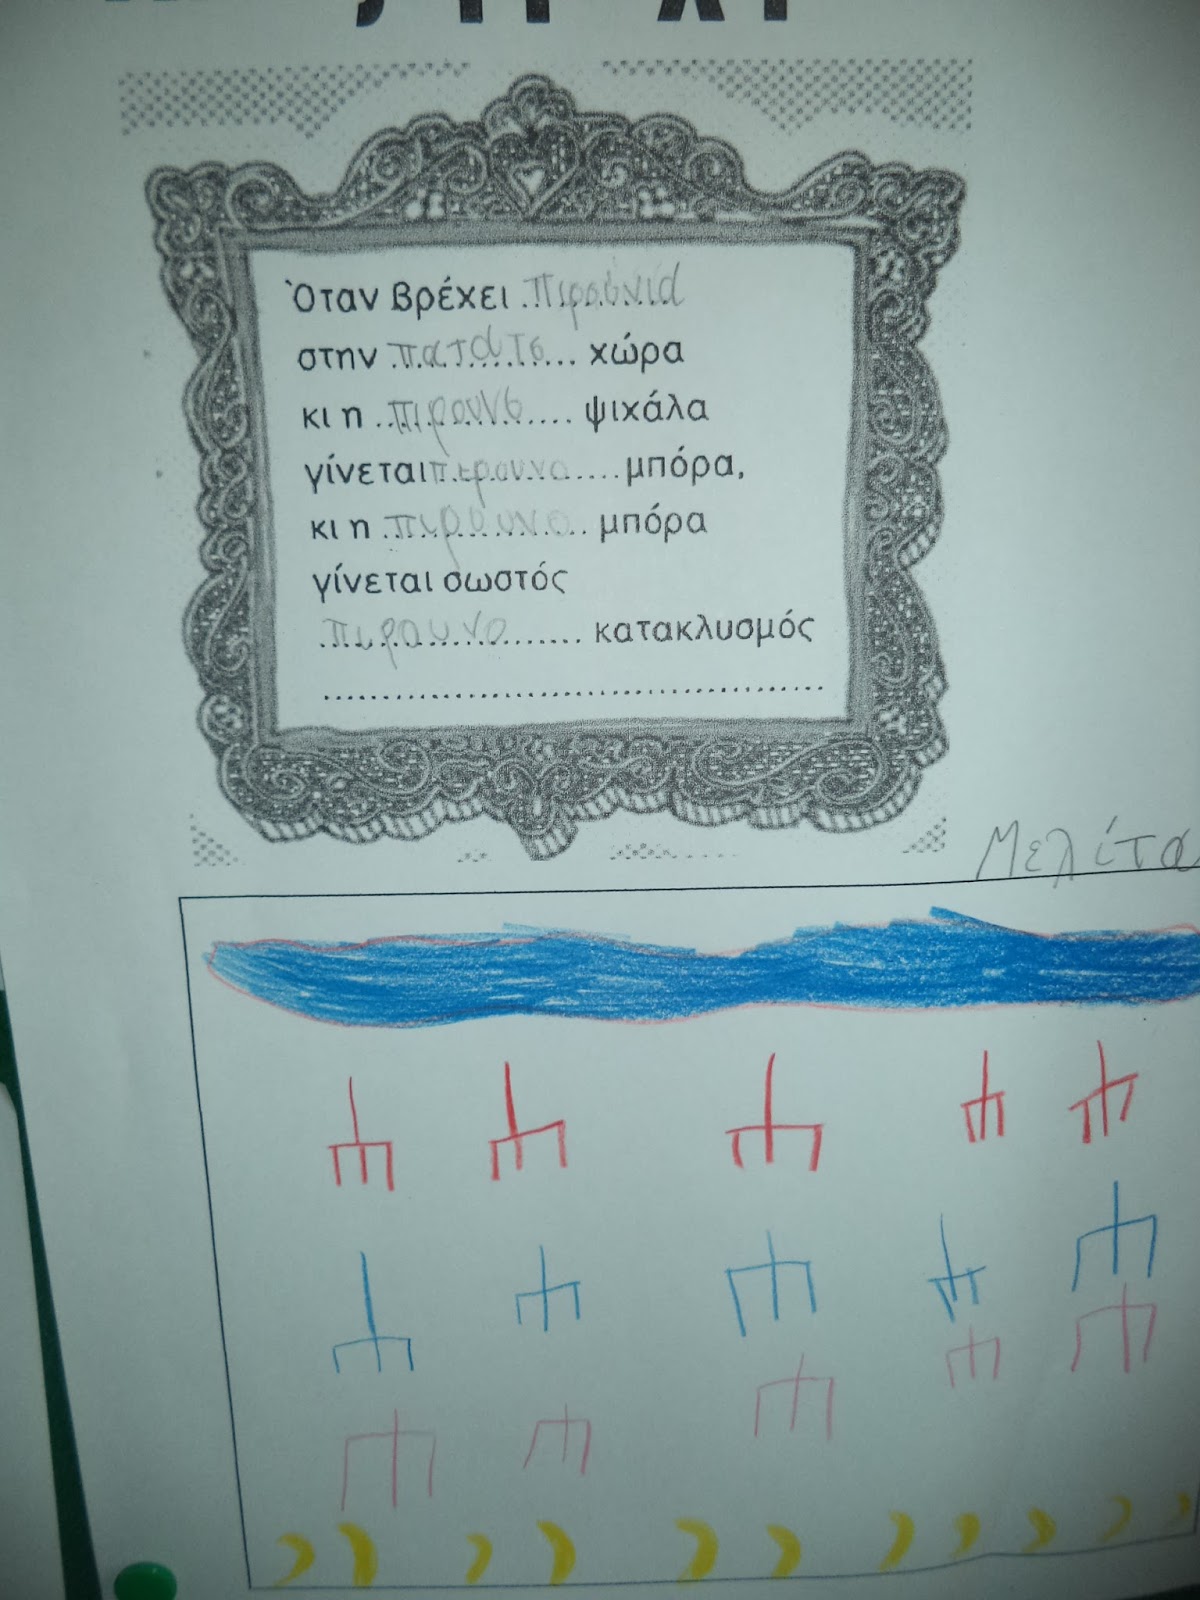 Όταν βρέχει πιρούνια
στην πατατο χώρα
κι η πιρουνο ψιχάλα
γίνεται πιρουνο μπόρα,
κι η πιρουνο μπόρα
γίνεται σωστός
πιρουνο κατακλυσμός
Μελίτα